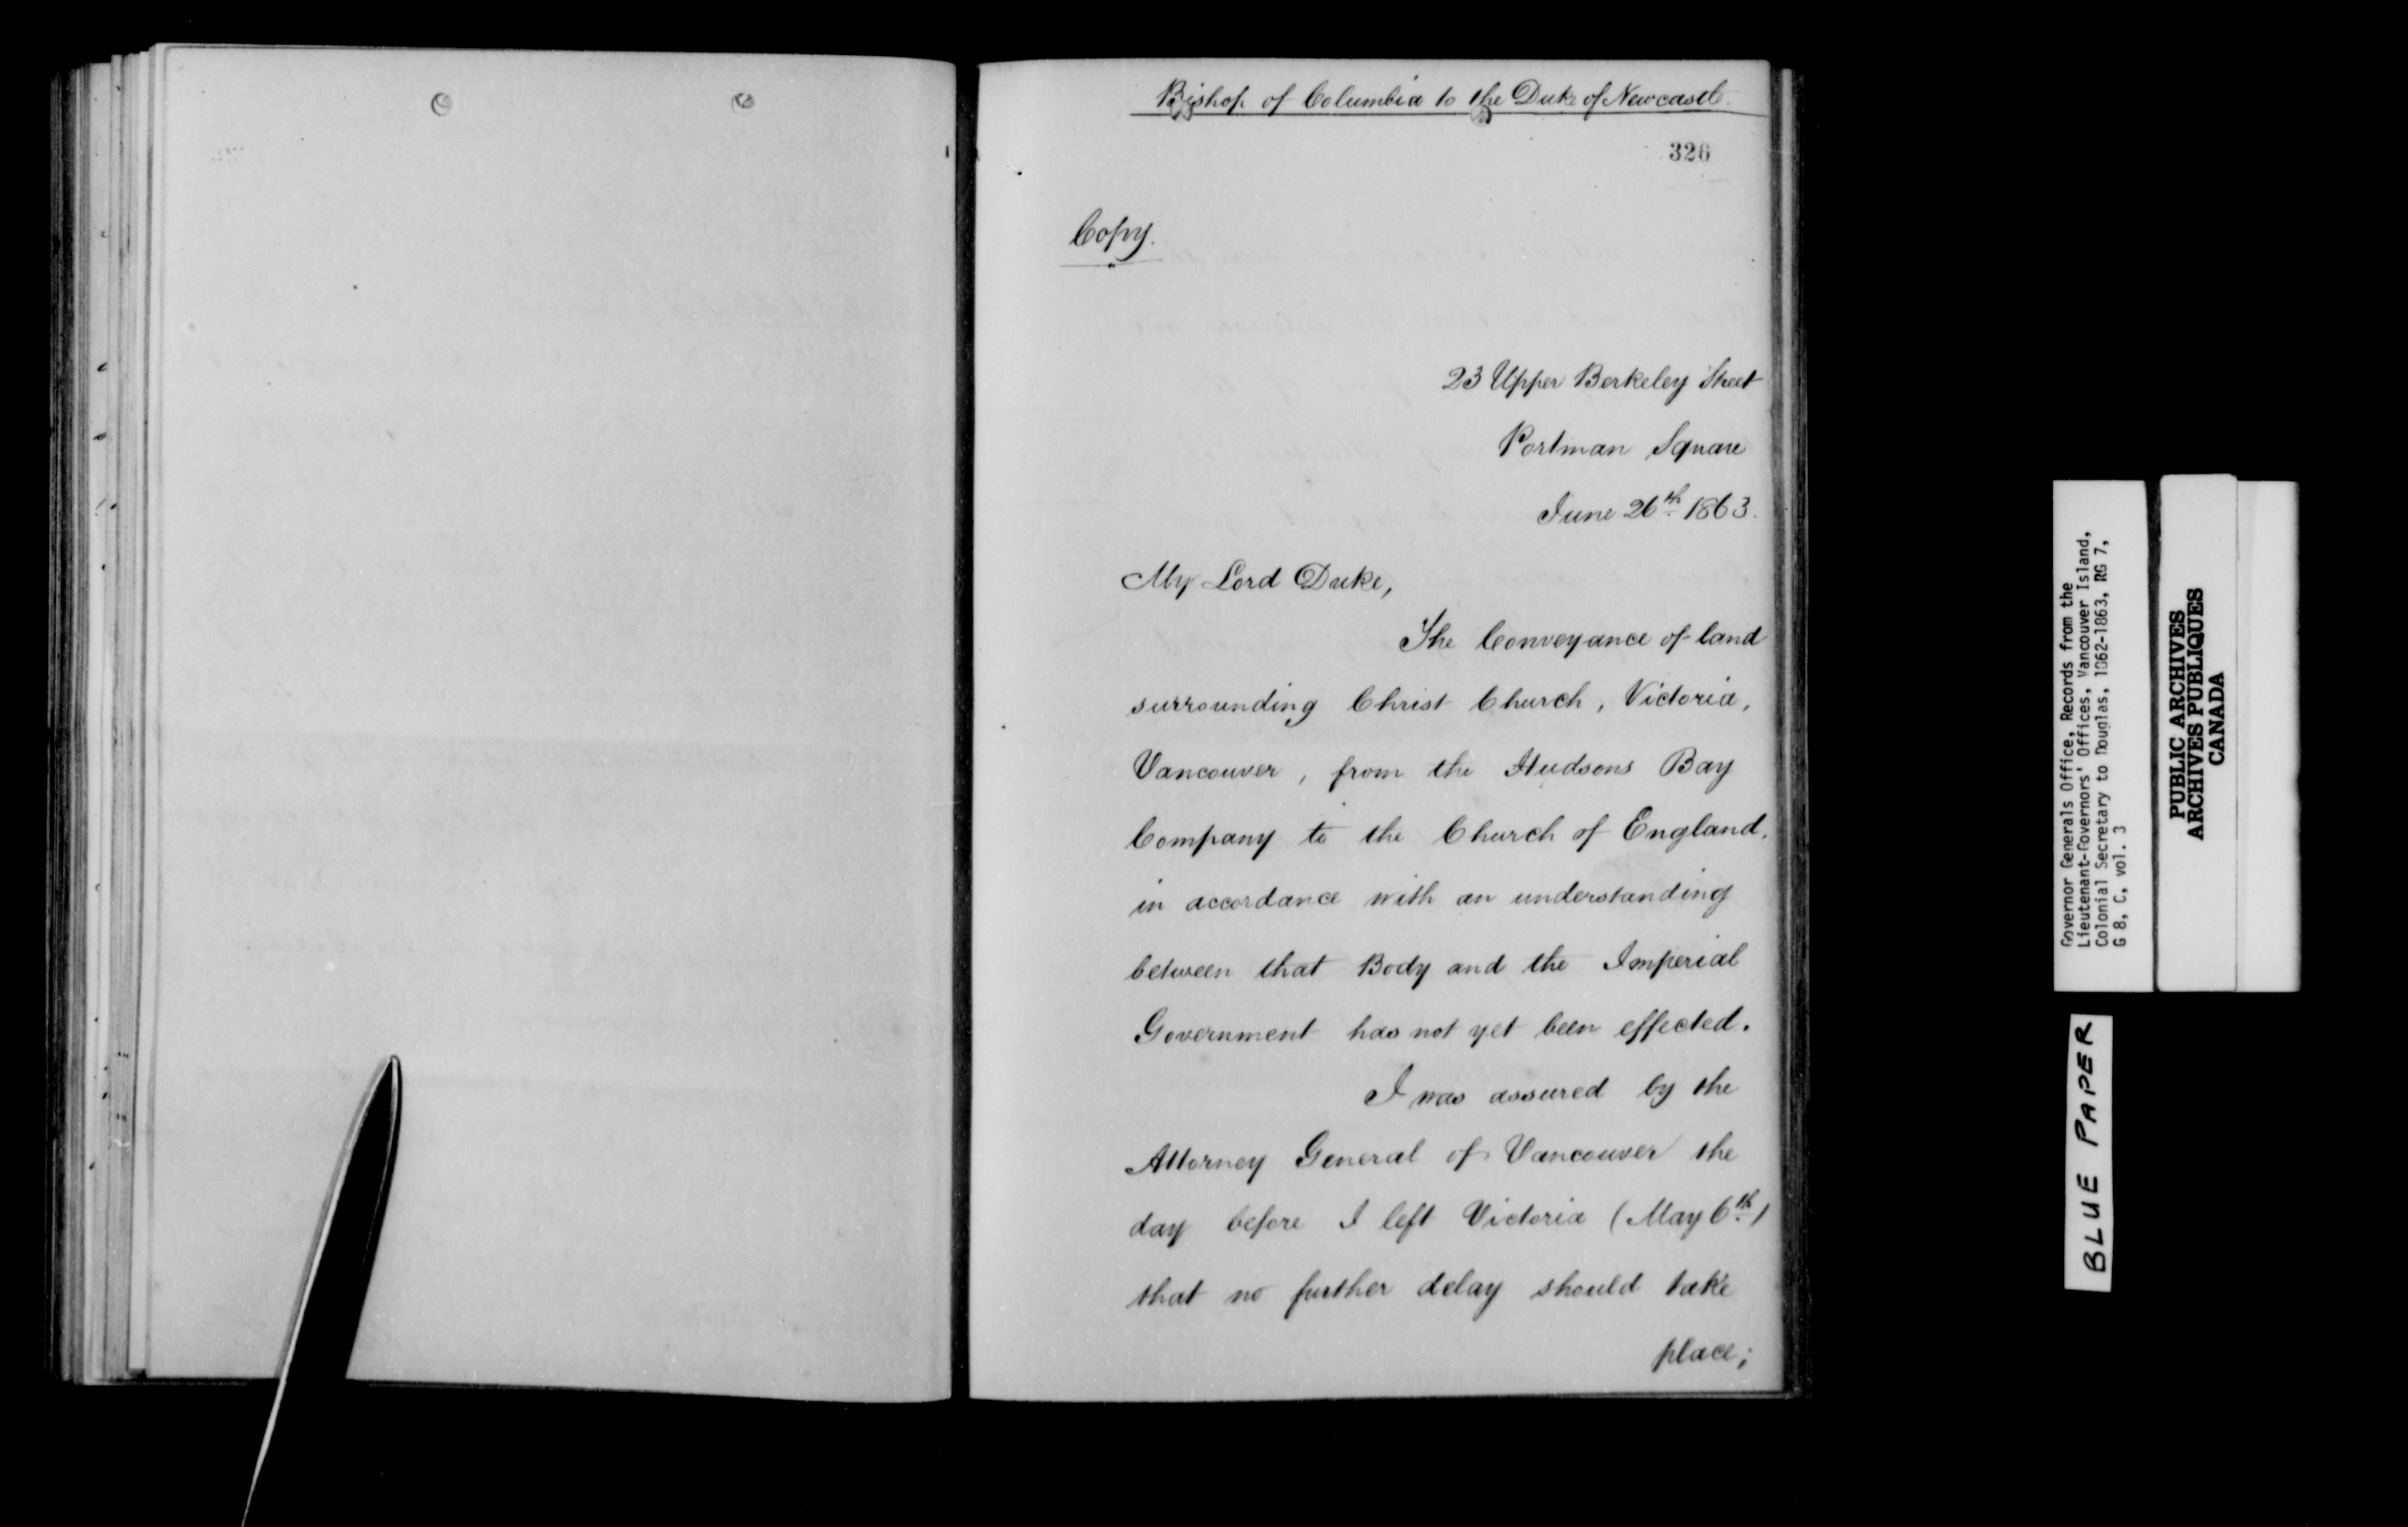 Bishop of Columbia to the Duke of Newcastle.
326
Copy.
23 Upper Berkeley Street
Portman Square
June 26th 1863.
My Lord Duke,
The Conveyance of land
surrounding Christ Church, Victoria,
Vancouver, from the Hudsons Bay
Company to the Church of England,
in accordance with an understanding
between that Body and the Imperial
Government has not yet been effected.
I was assured by the
Attorney General of Vancouver the
day before I left Victoria (May 6th)
that no further delay should take
place;
Governor Generals Office, Records from the
Lieutenant-Governors' Offices, Vancouver Island,
Colonial Secretary to Douglas, 1862-1863, RG 7,
G 8, C, vol. 3
PUBLIC ARCHIVES
ARCHIVES PUBLIQUES
CANADA
BLUE PAPER